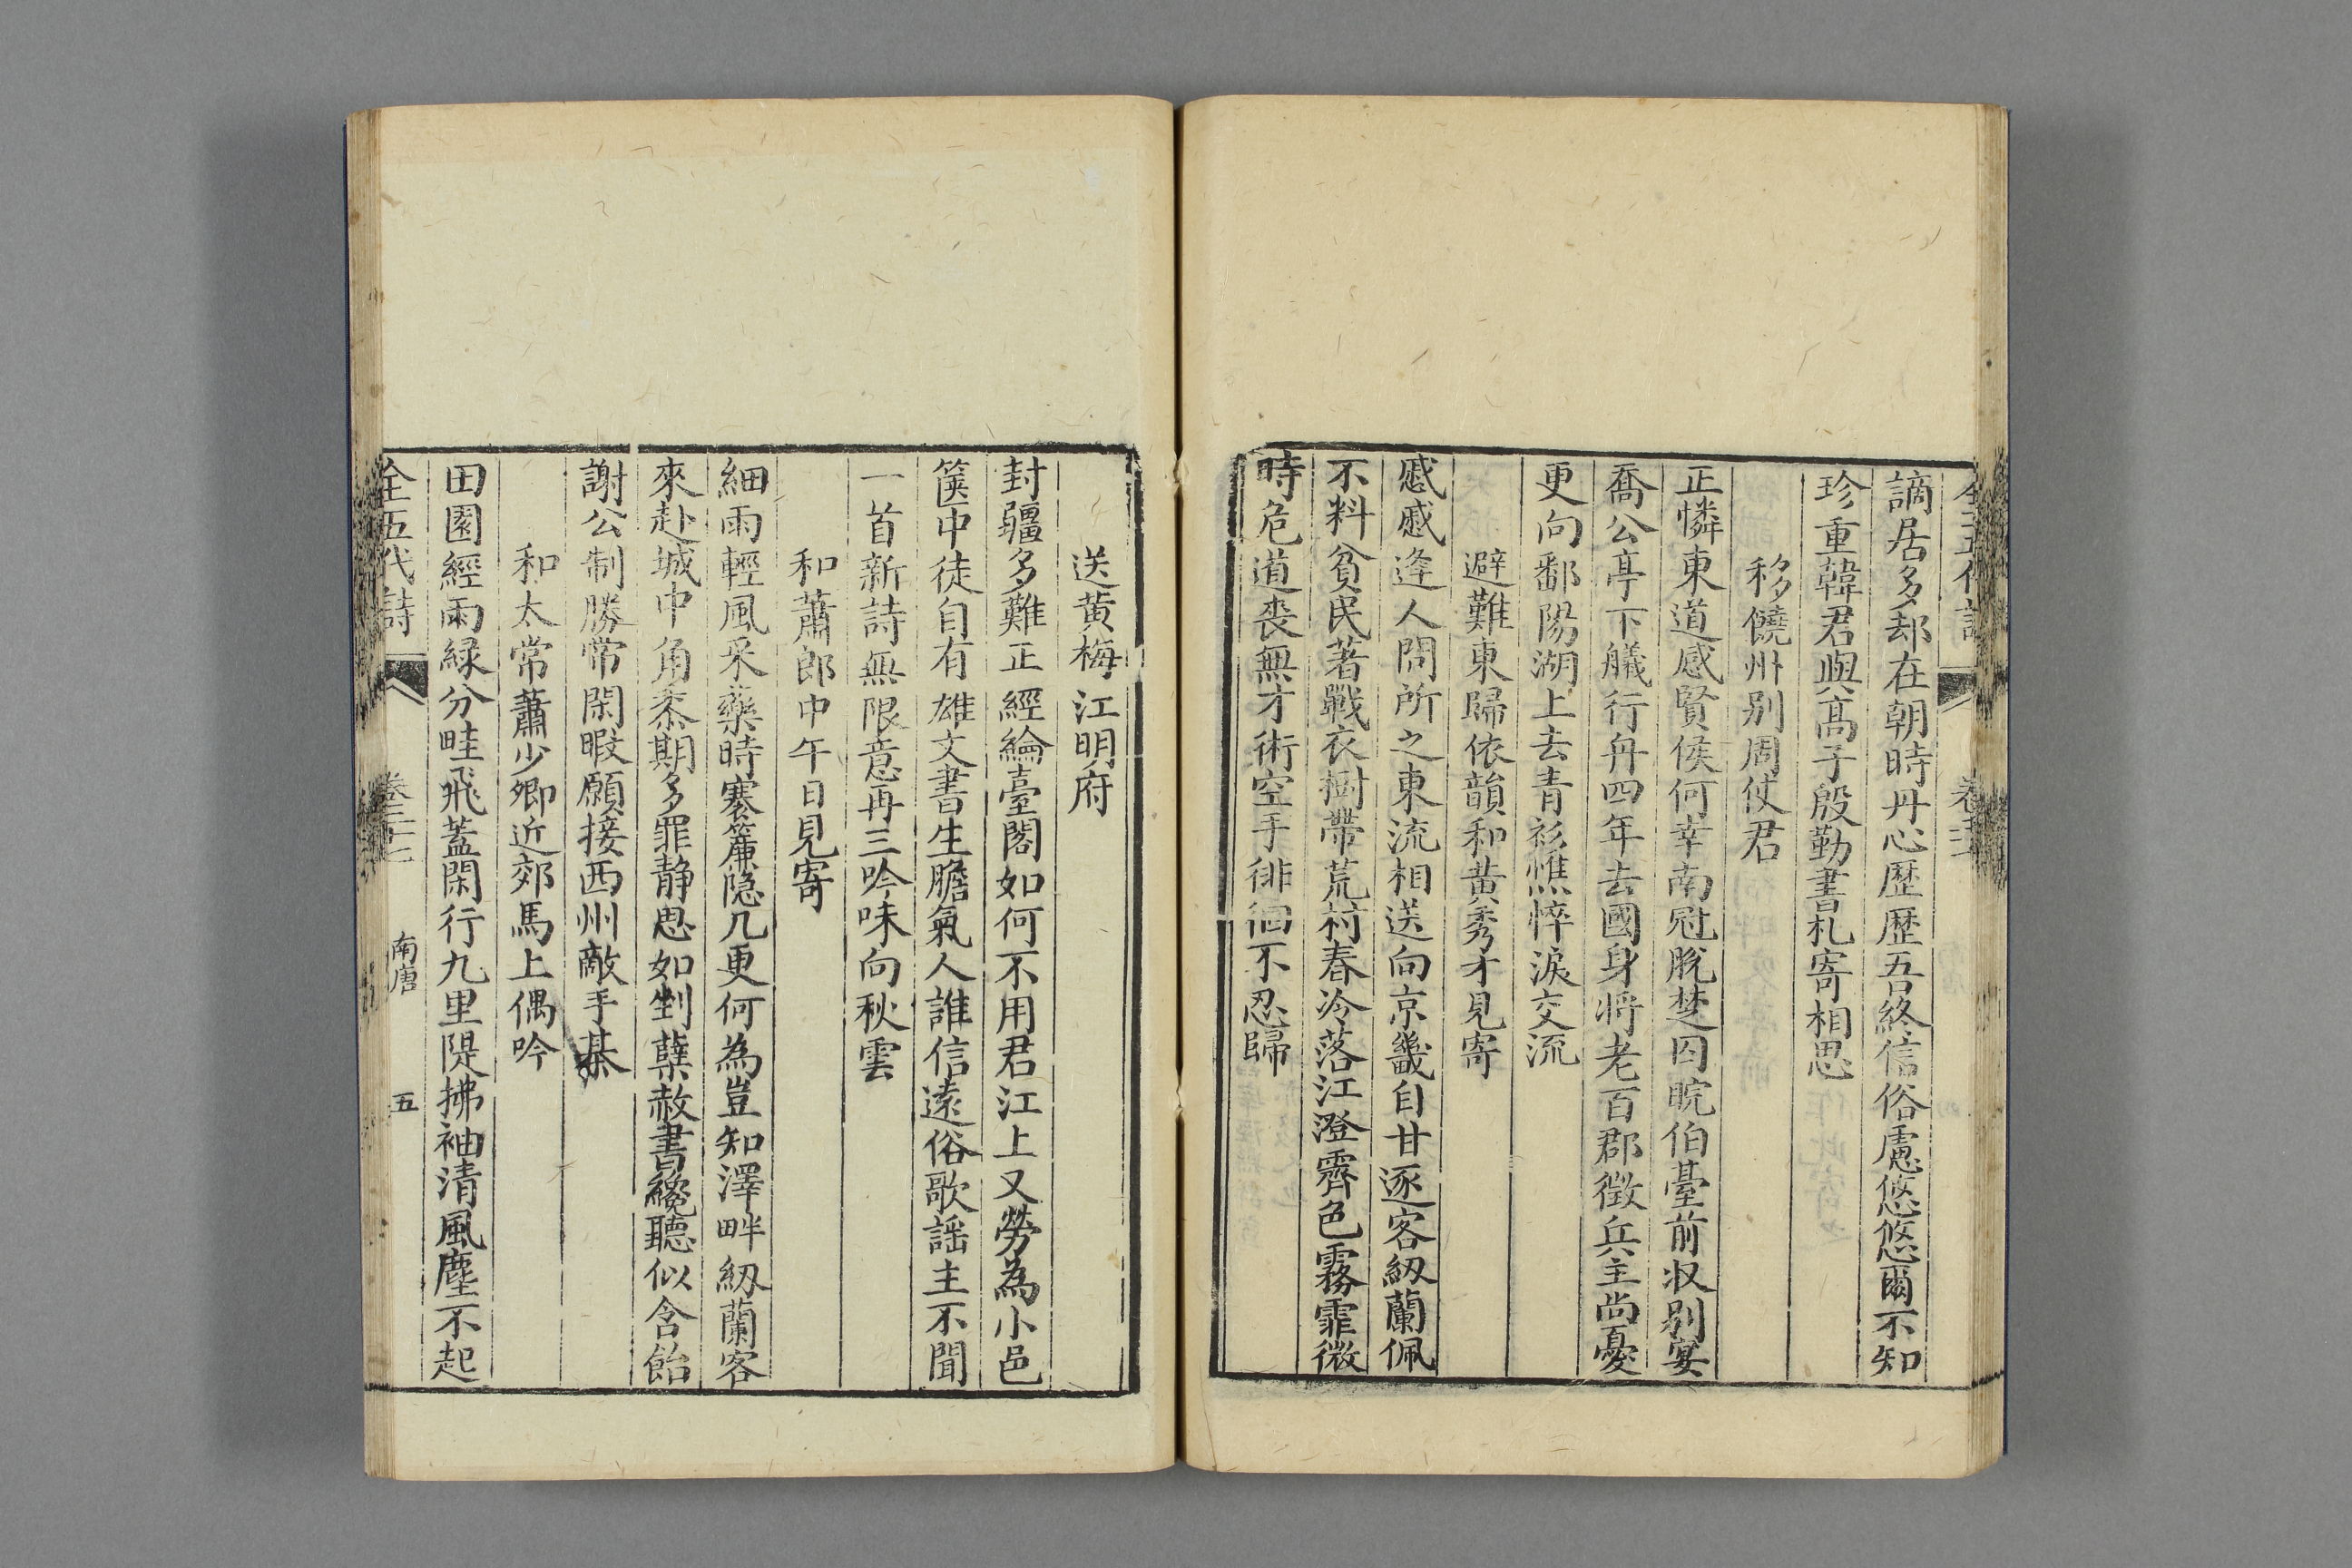 全五代詩
謫居多却在朝時丹心歴歴吾終信俗慮悠悠爾不知
珍重韓君與高子殷勤書札寄相思
移饒州别周使君
正憐東道感賢侯何幸南冠脫楚囚睆伯臺前收别宴
喬公亭下艤行舟四年去國身將老百郡徵兵主尚憂
更向鄱陽湖上去青衫憔悴淚交流
避難東歸依韻和黄秀才見寄
慼慼逢人問所之東流相送向京畿自甘逐客紉蘭佩
不料貧民著戰衣樹帶荒村春冷落江澄霽色霧霏微
時危道喪無才術空手徘徊不忍歸
送黄梅江明府
封疆多難正經綸臺閣如何不用君江上又勞為小邑
篋中徒自有雄文書生膽氣人誰信遠俗歌謡主不聞
一首新詩無限意再三吟味向秋雲
和蕭郎中午日見寄
細雨輕風采藥時褰簾隐几更何為豈知澤畔紉蘭客
來赴城中角黍期多罪静思如剉蘖赦書纔聽似含飴
謝公制勝常閑暇願接西州敵手棊
和太常蕭少卿近郊馬上偶吟
田園經雨緑分畦飛蓋閑行九里隄拂袖清風塵不起
全五代詩 卷三十七 南唐 五